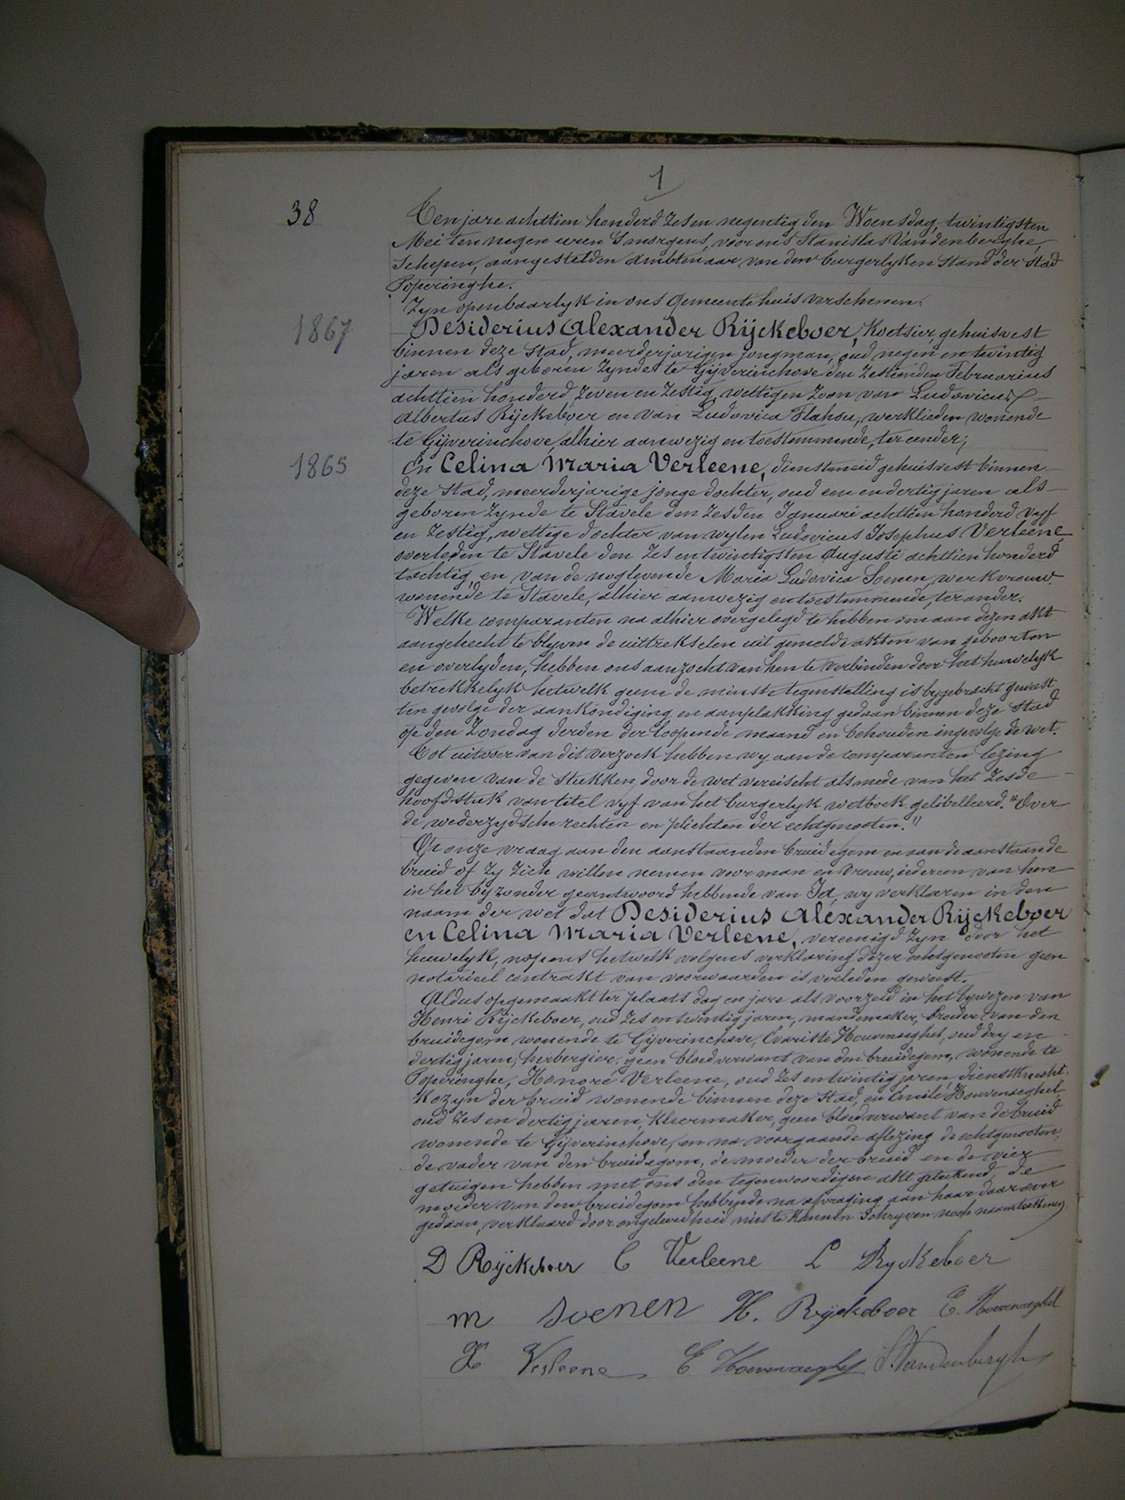 1
38
Ten jare achttien honderd zes en negentig den Woensdag, twintigsten
Mei ten negen uren 's morgens, voor ons Stanislas Vandenberghe,
Schepen, aangestelden ambtenaar van den burgerlyken stand der stad
Poperinghe.
Zyn openbaarlyk in ons gemeentehuis verschenen:
1867
Desiderius Alexander Rijckeboer, Koetsier, gehuisvest
binnen deze stad, meerderjarigen jongman, oud negen en twintig
jaren als geboren zynde te Gijverinchove den zestienden Februarius
achttien honderd zeven en zestig, wettigen zoon van Ludovicus
Albertus Rijckeboer en van Ludovica Flahou, werklieden wonende
te Gijverinchove, alhier aanwezig en toestemmende, ter eender;
1865
En Celina Maria Verleene, dienstmeid gehuisvest binnen
deze stad, meerderjarige jonge dochter, oud een en dertig jaren als
geboren zynde te Stavele den zesden Januari achttien honderd vyf
en zestig, wettige dochter van wylen Ludovicus Josephus Verleene,
overleden te Stavele den zes en twintigsten Augusti achttien honderd
tachtig, en van de noglevende Maria Ludovica Soenen, werkvrouw
wonende te Stavele, alhier aanwezig en toestemmende, ter ander.
Welke comparanten na alhier overgelegd te hebben om aan dezen akt
aangehecht te blyven de uittrekselen uit gemelde akten van geboorten
en overlyden, hebben ons aanzocht van hen te verbinden door het huwelyk
betrekkelyk hetwelk geene de minste tegenstelling is bygebracht geweest
ten gevolge der aankondiging en aanplakking gedaan binnen deze stad
op den Zondag derden der loopende maand en behouden ingevolge de wet.
Tot uitvoer van dit verzoek hebben wy aan de comparanten lezing
gegeven van de stukken door de wet vereischt alsmede van het zesde
hoofdstuk van titel vyf van het burgerlyk wetboek gelibelleerd: "Over
de wederzydsche rechten en plichten der echtgenooten."
Op onze vraag aan den aanstaanden bruidegom en aan de aanstaande
bruid of zy zich willen nemen voor man en vrouw, iedereen van hen
in het byzonder geantwoord hebbende van Ja, wy verklaren in den
naam der wet dat Desiderius Alexander Rijckeboer
en Celina Maria Verleene, vereenigd zyn door het
huwelyk, nopens hetwelk volgens verklaring dezer echtgenooten geen
notarieel contrakt van voorwaarden is verleden geweest.
Aldus opgemaakt ter plaats dag en jare als voorzeid in het bywezen van
Henri Rijckeboer, oud zes en twintig jaren, mandemaker, broeder van den
bruidegom wonende te Gijverinchove, Evariste Houvenaeghel, oud dry en
dertig jaren, herbergier, geen bloedverwant van den bruidegom, wonende te
Poperinghe, Honoré Verleene, oud zes en twintig jaren, dienstknecht,
Kozyn der bruid wonende binnen deze stad, en Emile Houvenaeghel
oud zes en dertig jaren, kleermaker, geen bloedverwant van de bruid
wonende te Gijverinchove, en na voorgaande aflezing de echtgenooten,
de vader van den bruidegom, de moeder der bruid en de vier
getuigen hebben met ons den tegenwoordigen akt geteekend, de
moeder van den bruidegom hebbende na afvraging aan haar daarover
gedaan, verklaard door ongeleerdheid niet te kunnen schryven noch naamteekenen
D Rijckeboer C Verleene L Ryckeboer
m soenen H. Rijckeboer E. Houvenaeghel
H Verleene E Houvenaeghel S. Vandenberghe